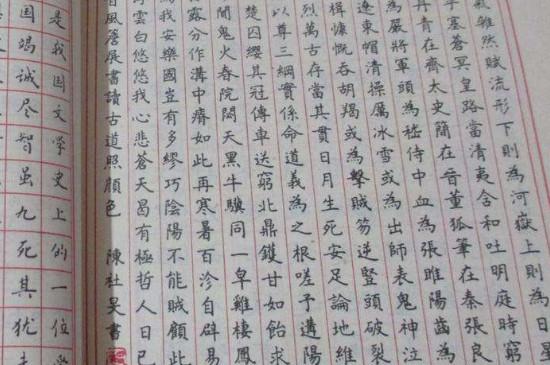 氣雜然賦流形下則為河嶽上則為日星
乎塞蒼冥皇路當清夷含和吐明庭時窮
丹青在齊太史簡在晉董狐筆在秦張良
為嚴將軍頭為嵇侍中血為張睢陽齒為
遼東帽清操厲冰雪或為出師表鬼神泣
楫慷慨吞胡羯或為擊賊笏逆豎頭破裂
烈萬古存當其貫日月生死安足論地維
以尊三綱實係命道義為之根嗟予遘陽
楚囚纓其冠傳車送窮北鼎鑊甘如飴求
間鬼火春院閟天黑牛驥同一皁雞棲鳳
露分作溝中瘠如此再寒暑百沴自辟易
為我安樂國豈有多繆巧陰陽不能賊顧此
雲白悠悠我心悲蒼天曷有極哲人日已
風簷展書讀古道照顏色 陳社昊書
是我国文学史上的一位
国竭诚尽智虽九死其犹未